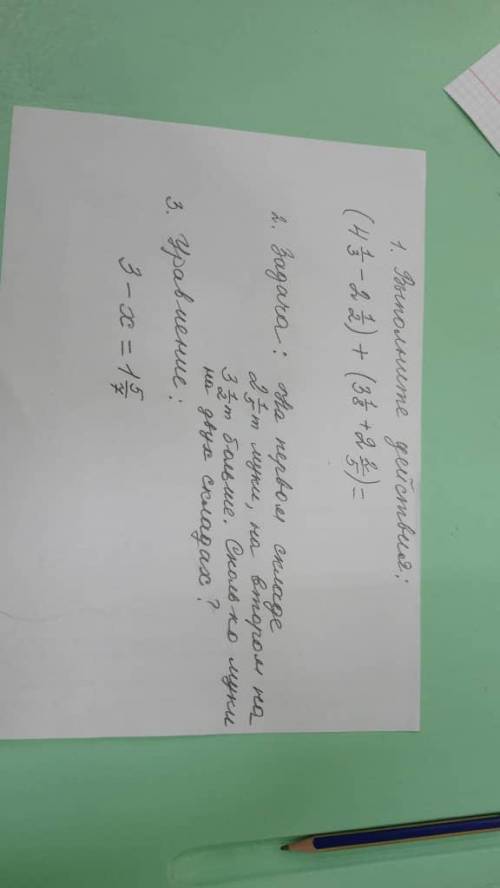 1. Выполните действия:
(4 1/3 - 2 1/2) + (3 1/8 + 2 2/5) =
2. Задача: На первом складе
2 1/5 т муки, на втором на
3 1/2 т больше. Сколько муки
на двух складах?
3. Уравнение:
3 - x = 1 5/7